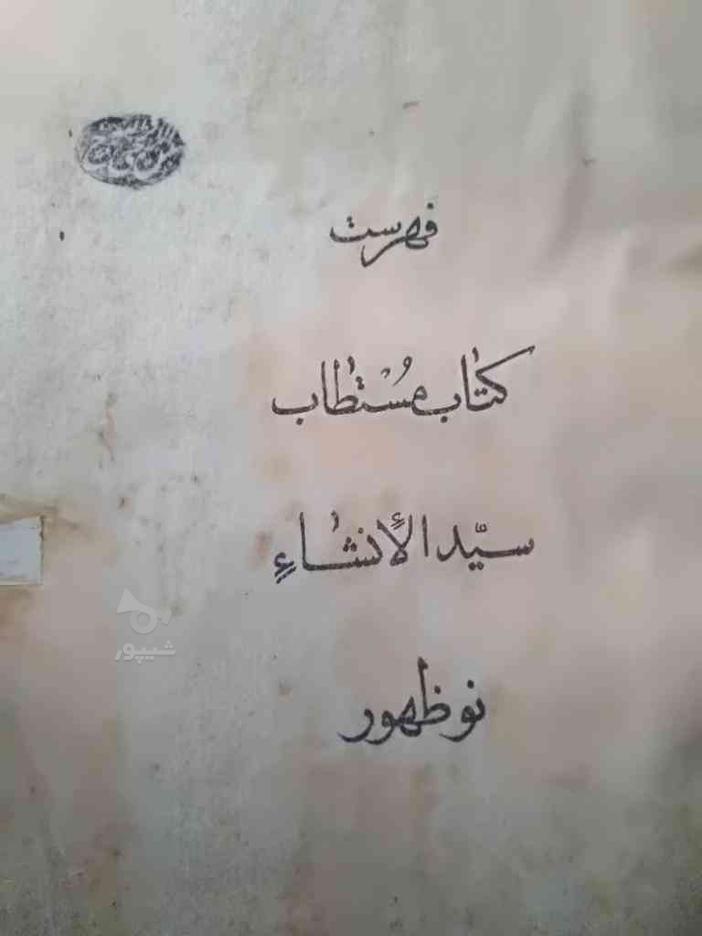 فهرست
کتاب مُستطاب
سیّد الإنشاءِ
نوظهور
شیپور